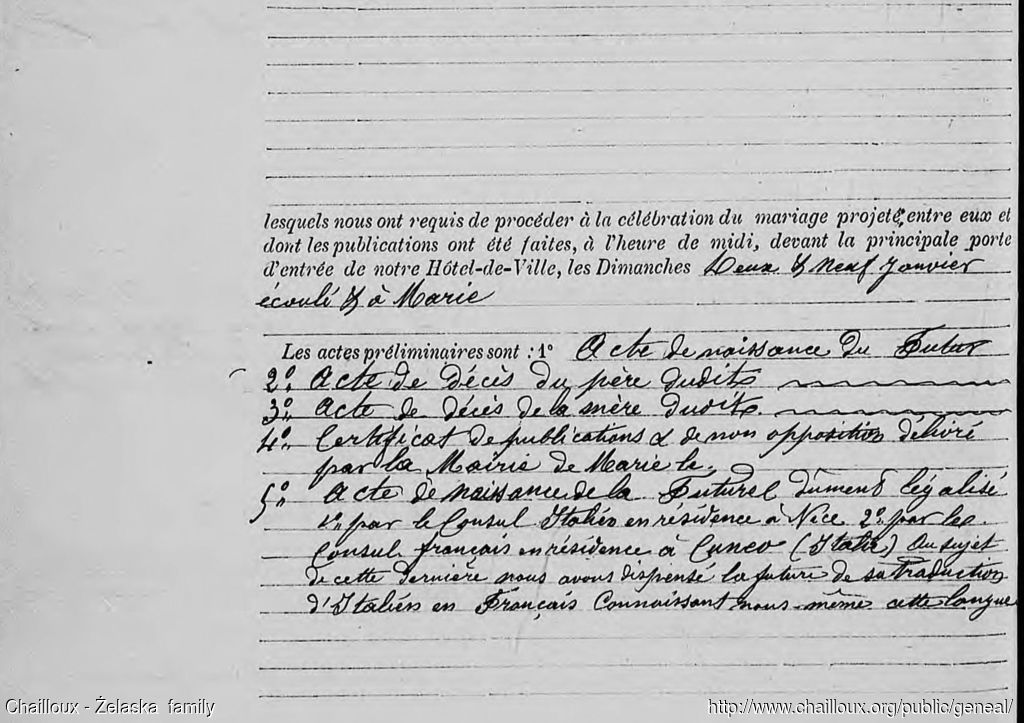 lesquels nous ont requis de procéder à la célébration du mariage projeté, entre eux et
dont les publications ont été faites, à l'heure de midi, devant la principale porte
d'entrée de notre Hôtel-de-Ville, les Dimanches Deux & Neuf Janvier
écoulé & à Marie
Les actes préliminaires sont : 1° Acte de naissance du Futur
2° Acte de Décès du père dudit
3° Acte de décès de la mère dudit.
4° Certificat de publications & de non opposition délivré
par la Mairie de Marie le.
5° Acte de naissance de la Future dûment légalisé
1° par le Consul Italien en résidence à Nice 2° par le
Consul français en résidence à Cuneo (Italie) Au sujet
de cette dernière nous avons dispensé la future de sa Traduction
d'Italien en Français Connaissant nous-même cette langue
Chailloux - Żelaska family
http://www.chailloux.org/public/geneal/